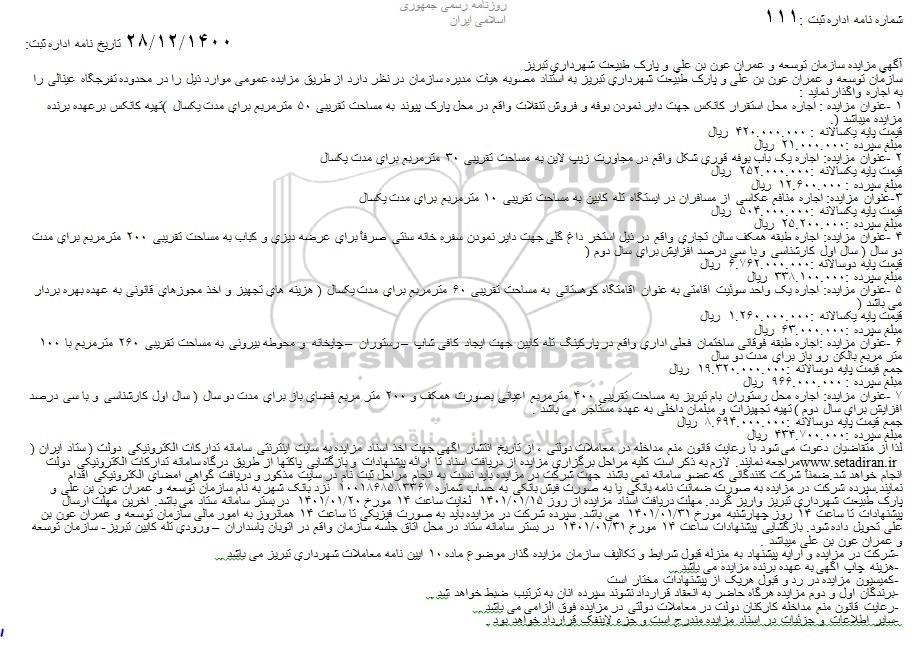 روزنامه رسمی جمهوری
اسلامی ایران
شماره نامه اداره ثبت : ۱۱۱
۲۸/۱۲/۱۴۰۰ تاریخ نامه اداره ثبت:
آگهي مزايده سازمان توسعه و عمران عون بن علي و پارک طبيعت شهرداري تبريز
سازمان توسعه و عمران عون بن علی و پارک طبیعت شهرداري تبریز به استناد مصوبه هیأت مدیره سازمان در نظر دارد از طریق مزایده عمومی موارد ذیل را در محدوده تفرجگاه عینالی را
به اجاره واگذار نماید :
۱ -عنوان مزایده : اجاره محل استقرار کانکس جهت دایر نمودن بوفه و فروش تنقلات واقع در محل پارک پیوند به مساحت تقریبی ۵۰ مترمربع براي مدت یکسال )تهیه کانکس برعهده برنده
مزایده میباشد (.
قیمت پایه یکسالانه : ۴۲۰.۰۰۰.۰۰۰ ریال
مبلغ سپرده :۲۱.۰۰۰.۰۰۰ ریال
۲ -عنوان مزایده: اجاره یک باب بوفه قوري شکل واقع در مجاورت زیپ لاین به مساحت تقریبی ۳۰ مترمربع براي مدت یکسال
قیمت پایه یکسالانه :۲۵۲.۰۰۰.۰۰۰ ریال
مبلغ سپرده : ۱۲.۶۰۰.۰۰۰ ریال
۳-عنوان مزایده: اجاره منافع عکاسی از مسافران در ایستگاه تله کابین به مساحت تقریبی ۱۰ مترمربع براي مدت یکسال
قیمت پایه یکسالانه :۵۰۴.۰۰۰.۰۰۰ ریال
مبلغ سپرده :۲۵.۲۰۰.۰۰۰ ریال
۴ -عنوان مزایده: اجاره طبقه همکف سالن تجاري واقع در ذیل استخر داغ گلی جهت دایر نمودن سفره خانه سنتی صرفاً براي عرضه دیزي و کباب به مساحت تقریبی ۲۰۰ مترمربع براي مدت
دو سال ( سال اول کارشناسی و با سی درصد افزایش براي سال دوم (
قیمت پایه دوسالانه :۶.۷۶۲.۰۰۰.۰۰۰ ریال
مبلغ سپرده :۳۳۸.۱۰۰.۰۰۰ ریال
۵ -عنوان مزایده: اجاره یک واحد سوئیت اقامتی به عنوان اقامتگاه کوهستانی به مساحت تقریبی ۶۰ مترمربع براي مدت یکسال ( هزینه هاي تجهیز و اخذ مجوزهاي قانونی به عهده بهره بردار
می باشد (
قیمت پایه یکسالانه :۱.۲۶۰.۰۰۰.۰۰۰ ریال
مبلغ سپرده :۶۳.۰۰۰.۰۰۰ ریال
۶ -عنوان مزایده :اجاره طبقه فوقانی ساختمان فعلی اداري واقع در پارکینگ تله کابین جهت ایجاد کافی شاپ –رستوران –چایخانه و محوطه بیرونی به مساحت تقریبی ۲۶۰ مترمربع با ۱۰۰
متر مربع بالکن رو باز براي مدت دو سال
جمع قیمت پایه دوسالانه :۱۹.۳۲۰.۰۰۰.۰۰۰ ریال
مبلغ سپرده : ۹۶۶.۰۰۰.۰۰۰ ریال
۷ -عنوان مزایده: اجاره محل رستوران بام تبریز به مساحت تقریبی ۴۰۰ مترمربع اعیانی بصورت همکف و ۲۰۰ متر مربع فضاي باز براي مدت دو سال ( سال اول کارشناسی و با سی درصد
افزایش براي سال دوم ) تهیه تجهیزات و مبلمان داخلی به عهده مستأجر می باشد .
جمع قیمت پایه دوسالانه :۸.۶۹۴.۰۰۰.۰۰۰ ریال
مبلغ سپرده :۴۳۴.۷۰۰.۰۰۰ ریال
لذا از متقاضیان دعوت می شود با رعایت قانون منع مداخله در معاملات دولتی ، از تاریخ انتشار آگهی جهت اخذ اسناد مزایده به سایت اینترنتی سامانه تدارکات الکترونیکی دولت (ستاد ایران (
www.setadiran.irمراجعه نمایند. لازم به ذکر است کلیه مراحل برگزاري مزایده از دریافت اسناد تا ارائه پیشنهادات و بازگشایی پاکتها از طریق درگاه سامانه تدارکات الکترونیکی دولت
انجام خواهد شد.ضمناً شرکت کنندگانی که عضو سامانه نمی باشند جهت شرکت در مزایده باید نسبت به انجام مراحل ثبت نام در سایت مذکور و دریافت گواهی امضاي الکترونیکی اقدام
نمایند.سپرده شرکت در مزایده به صورت ضمانت نامه بانکی یا به صورت فیش بانکی به حساب شماره نزد بانک شهر به نام سازمان توسعه و عمران عون بن علی و
پارک طبیعت شهرداري تبریز واریز گردد. مهلت دریافت اسناد مزایده از روز ۱۴۰۱/۰۱/۱۵ لغایت ساعت ۱۴ مورخ ۱۴۰۱/۰۱/۲۰ در بستر سامانه ستاد می باشد. آخرین مهلت ارسال
پیشنهادات تا ساعت ۱۴ روز چهارشنبه مورخ ۱۴۰۱/۰۱/۳۱ می باشد. سپرده شرکت در مزایده باید به صورت فیزیکی تا ساعت ۱۴ همانروز به امور مالی سازمان توسعه و عمران عون بن
علی تحویل داده شود. بازگشایی پیشنهادات ساعت ۱۴ مورخ ۱۴۰۱/۰۱/۳۱ در بستر سامانه ستاد در محل اتاق جلسه سازمان واقع در اتوبان پاسداران – ورودي تله کابین تبریز- سازمان توسعه
و عمران عون بن علی میباشد .
-شرکت در مزایده و ارایه پیشنهاد به منزله قبول شرایط و تکالیف سازمان مزایده گذار موضوع ماده ۱۰ آیین نامه معاملات شهرداري تبریز می باشد.
-هزینه چاپ آگهی به عهده برنده مزایده می باشد.
-کمیسیون مزایده در رد و قبول هریک از پیشنهادات مختار است
-برندگان اول و دوم مزایده هرگاه حاضر به انعقاد قرارداد نشوند سپرده آنان به ترتیب ضبط خواهد شد.
-رعایت قانون منع مداخله کارکنان دولت در معاملات دولتی در مزایده فوق الزامی می باشد.
-سایر اطلاعات و جزئیات در اسناد مزایده مندرج است و جزء لاینفک قرارداد خواهد بود .
ParsNamadData